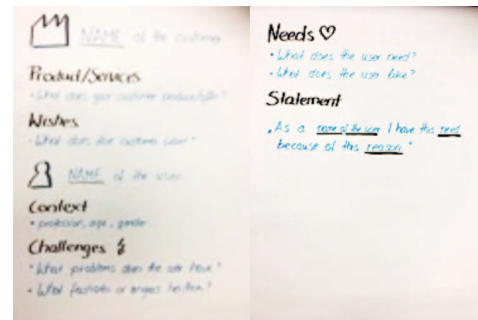 NAME of the customer
Product/Services
• What does your customer produce/offer?
Wishes
• What does the customer want?
NAME of the user
Context
• profession, age, gender
Challenges
• What problems does the user have?
• What frustrates or angers him/her?
Needs
• What does the user need?
• What does the user like?
Statement
„As a name of the user I have this need
because of this reason"